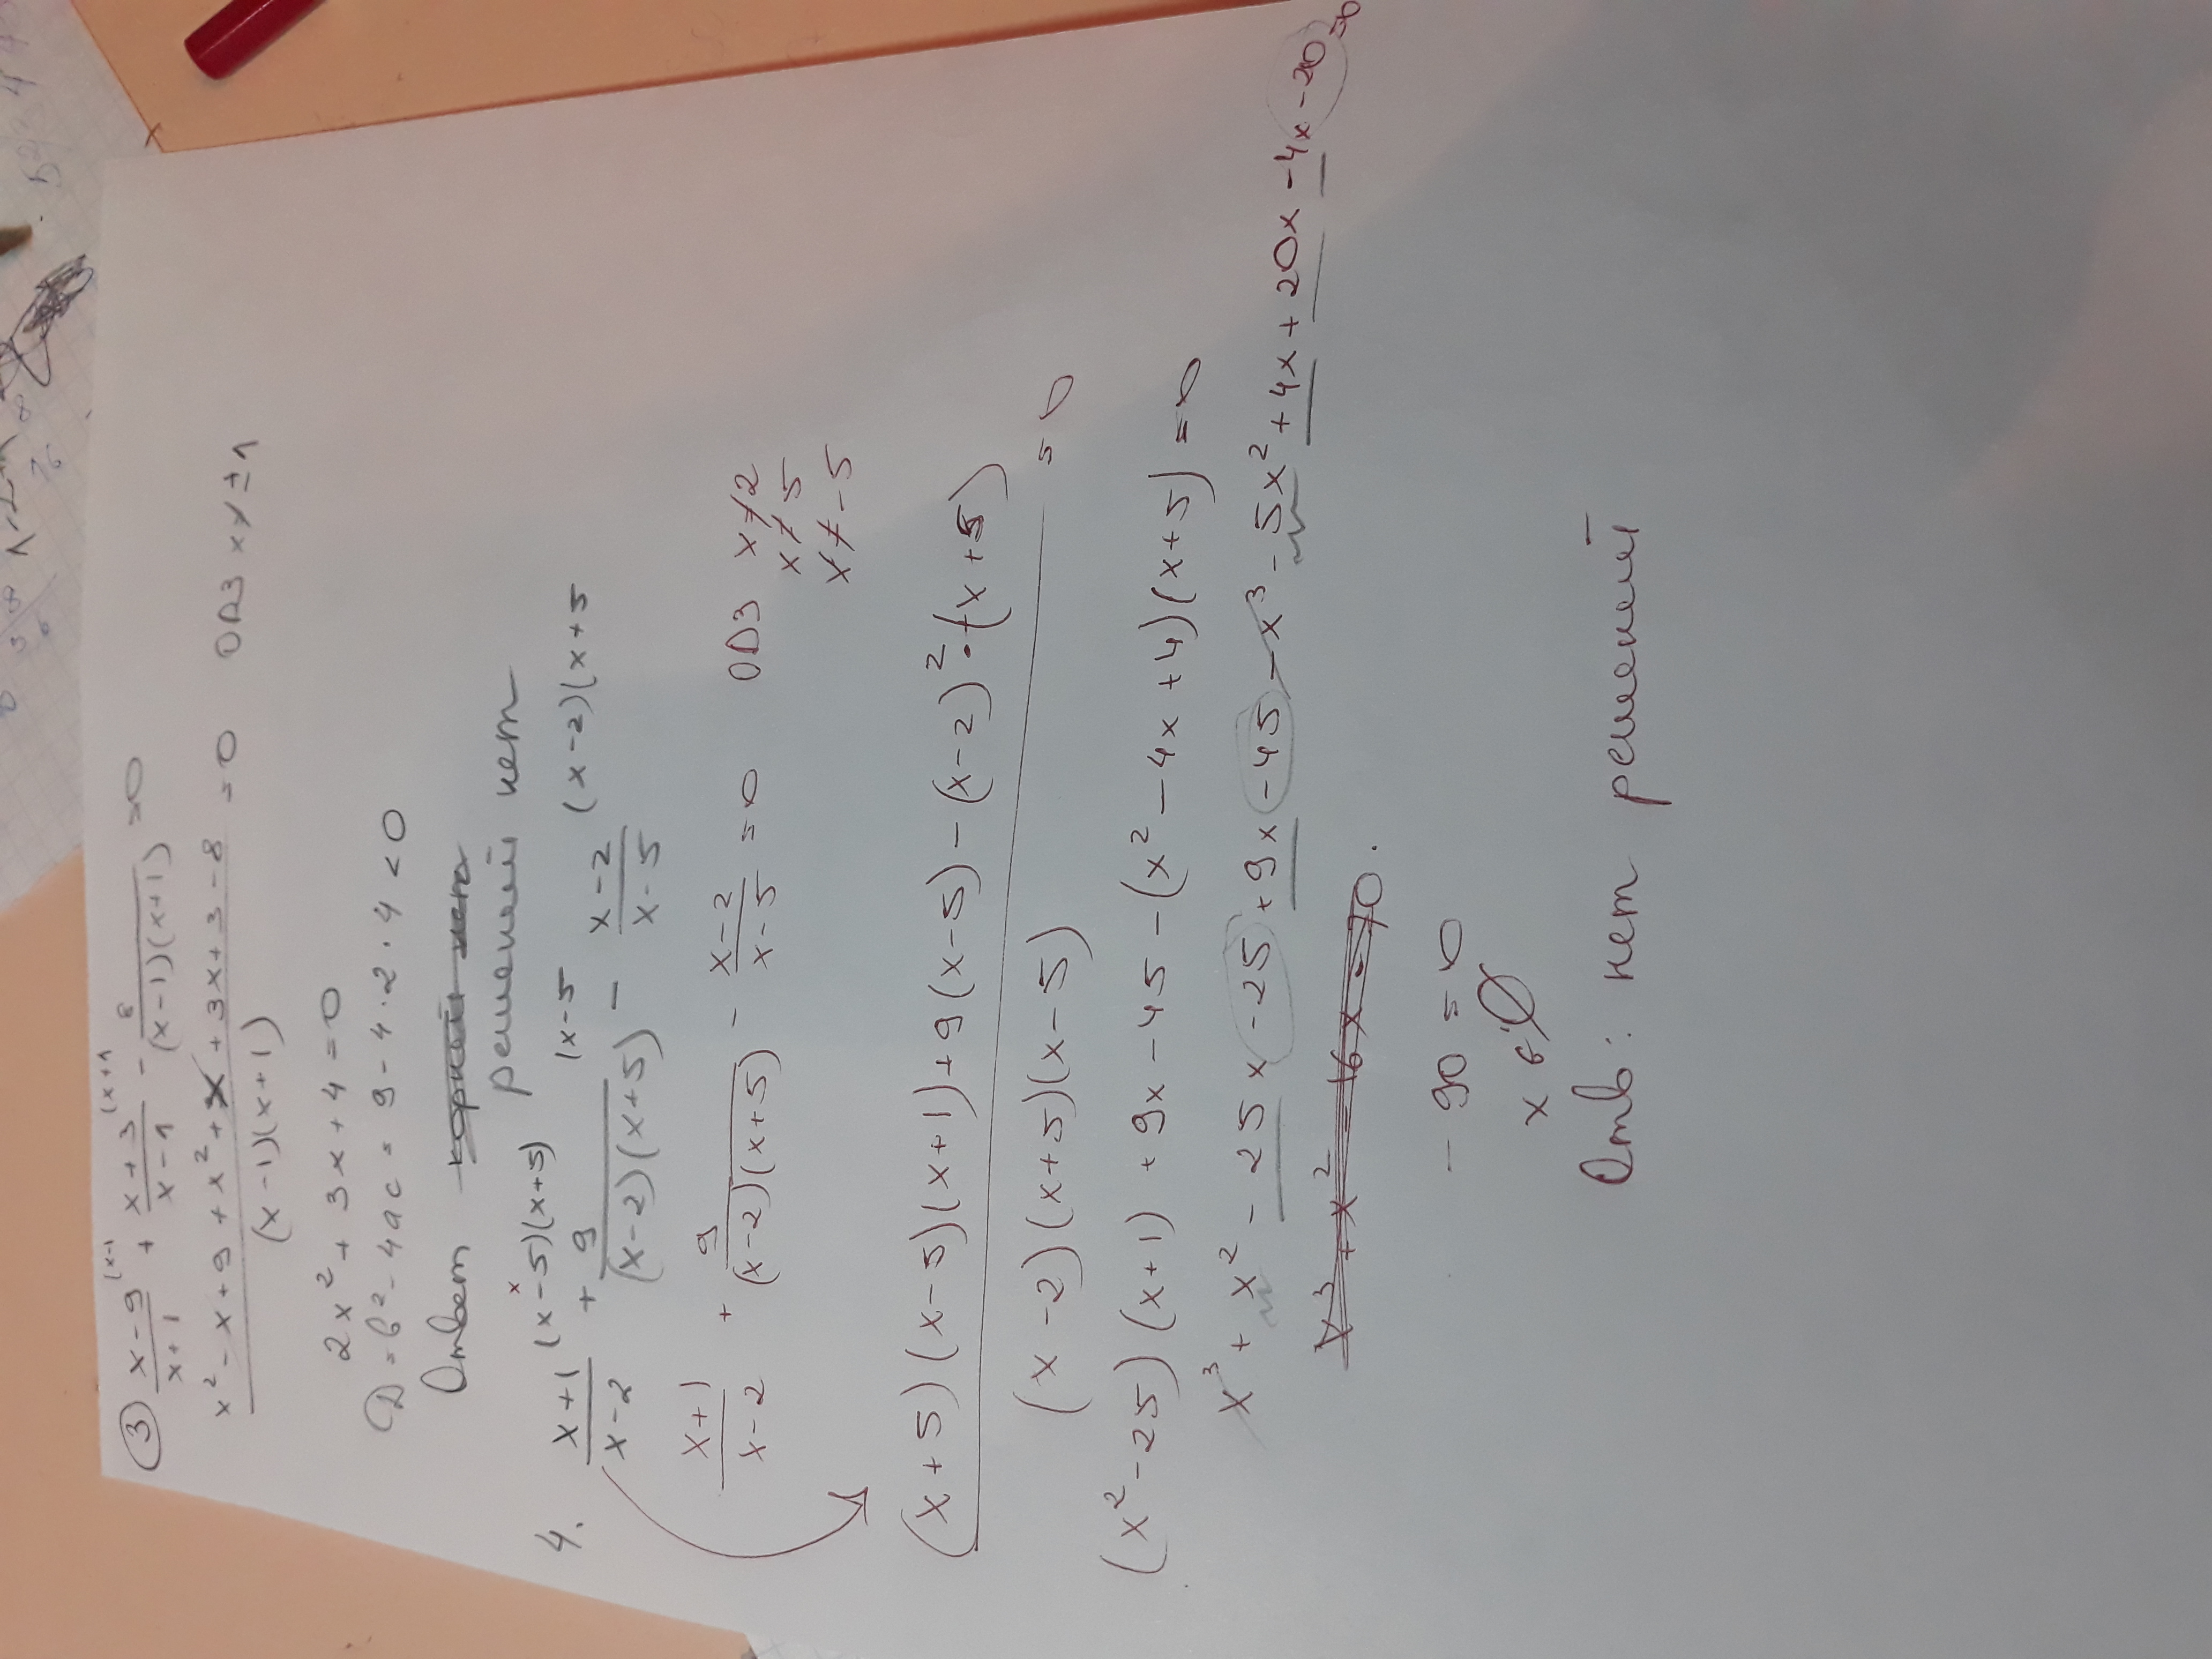 ③ (x-9)/(x+1) (x-1 + (x+3)/(x-1) (x+1 - 8/((x-1)(x+1)) = 0
(x² - x + 9 + x² + x + 3x + 3 - 8)/((x-1)(x+1)) = 0 ОДЗ x≠±1
2x² + 3x + 4 = 0
D = b² - 4ac = 9 - 4·2·4 < 0
Ответ решений нет
4. (x+1)/(x-2) (x-5)(x+5) + 9/((x-2)(x+5)) (x-5 - (x-2)/(x-5) (x-2)(x+5
(x+1)/(x-2) + 9/((x-2)(x+5)) - (x-2)/(x-5) = 0 ОДЗ x≠2
x≠5
x≠-5
((x+5)(x-5)(x+1)+9(x-5)-(x-2)²·(x+5))/((x-2)(x+5)(x-5)) = 0
(x²-25)(x+1) + 9x - 45 - (x² - 4x + 4)(x+5) = 0
x³ + x² - 25x - 25 + 9x - 45 - x³ - 5x² + 4x + 20x - 4x - 20 = 0
x³ + x² - 16x - 70.
- 90 = 0
x ∈ ∅
Отв: нет решений